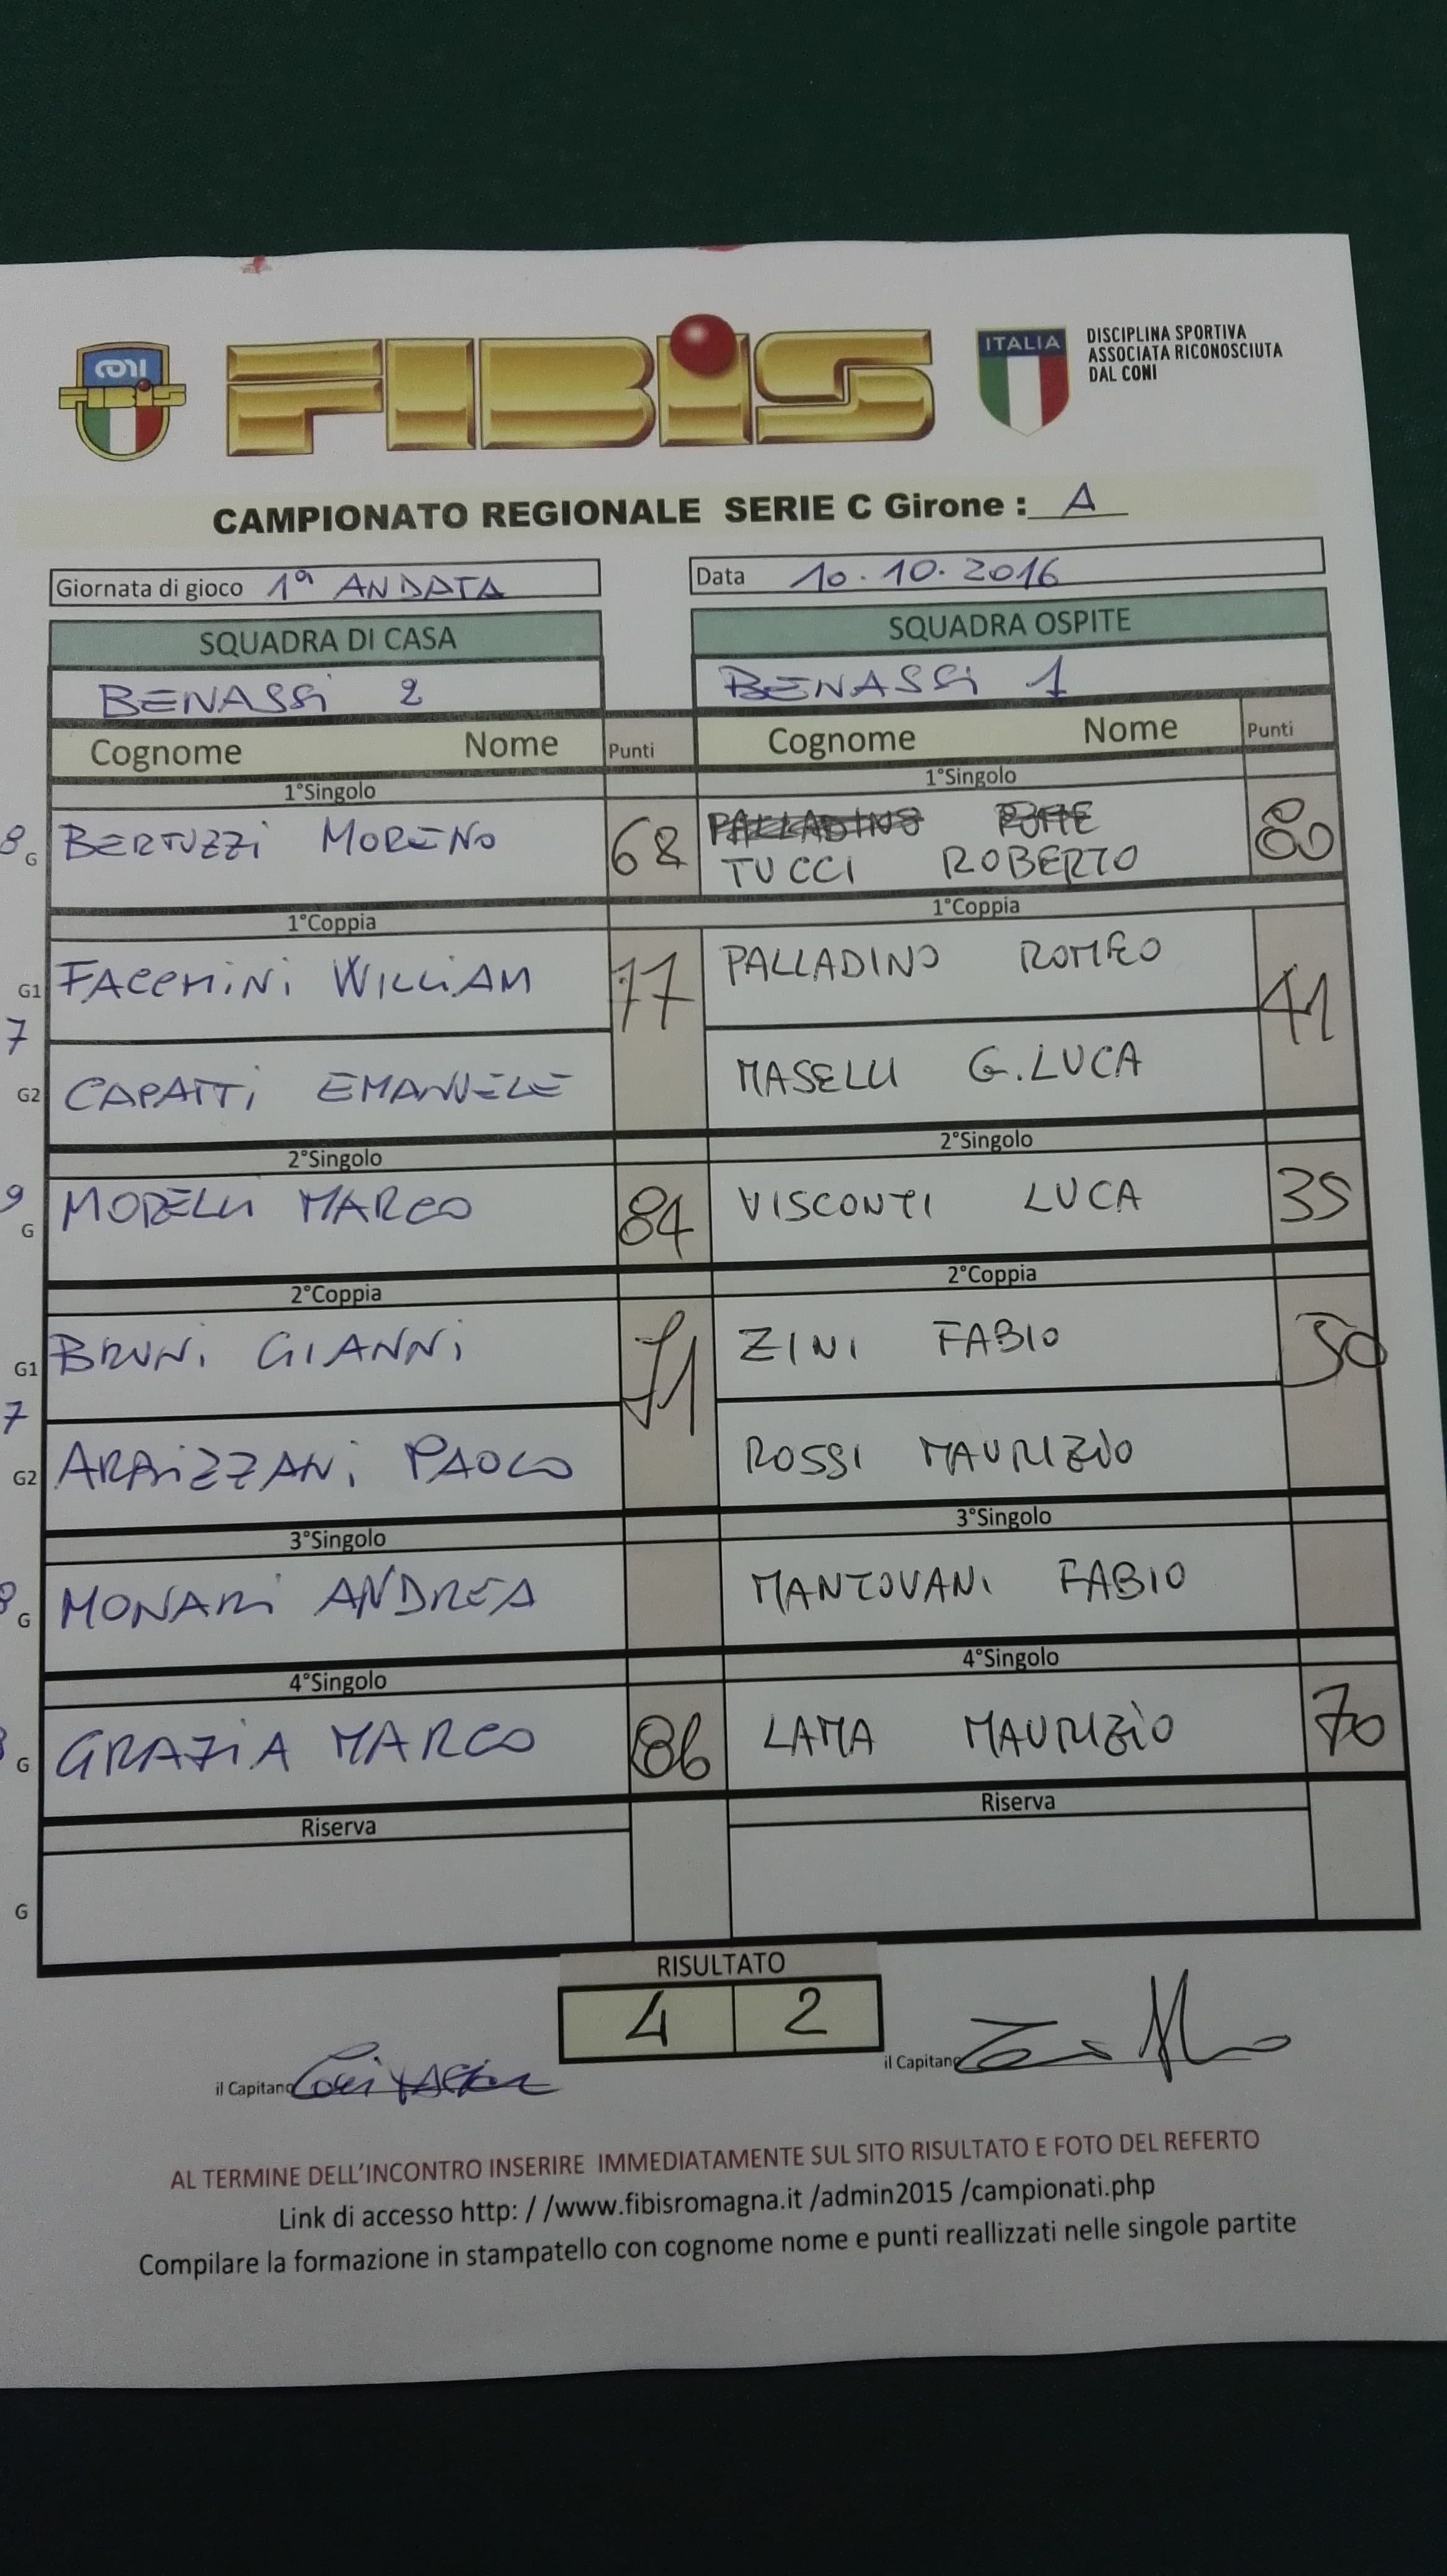 CONI
FIBiS
FIBiS
ITALIA
DISCIPLINA SPORTIVA
ASSOCIATA RICONOSCIUTA
DAL CONI
CAMPIONATO REGIONALE SERIE C Girone : A
Giornata di gioco 1ª ANDATA Data 10.10.2016
SQUADRA DI CASA SQUADRA OSPITE
BENASSi 2 BENASSi 1
Cognome Nome Punti Cognome Nome Punti
1°Singolo 1°Singolo
PALLADINO
8 G BERTUZZi MORENO 68 TUCCI ROBERTO 80
1°Coppia 1°Coppia
G1 FACCHiNi WiLLiAM 77 PALLADINO ROMEO 41
7
G2 CAPATTi EMANUELE MASELLI G.LUCA
2°Singolo 2°Singolo
9 G MORELLi MARCO 84 VISCONTI LUCA 35
2°Coppia 2°Coppia
G1 BRUNi GIANNi 71 ZINI FABIO 50
7
G2 PAOLO ROSSI MAURIZIO
3°Singolo 3°Singolo
G MONARi ANDREA MANTOVANI FABIO
4°Singolo 4°Singolo
G GRAZiA MARCO 86 LAMA MAURIZIO 70
Riserva Riserva
G
RISULTATO
4 2
il Capitano il Capitano
AL TERMINE DELL'INCONTRO INSERIRE IMMEDIATAMENTE SUL SITO RISULTATO E FOTO DEL REFERTO
Link di accesso http: / /www.fibisromagna.it /admin2015 /campionati.php
Compilare la formazione in stampatello con cognome nome e punti reallizzati nelle singole partite